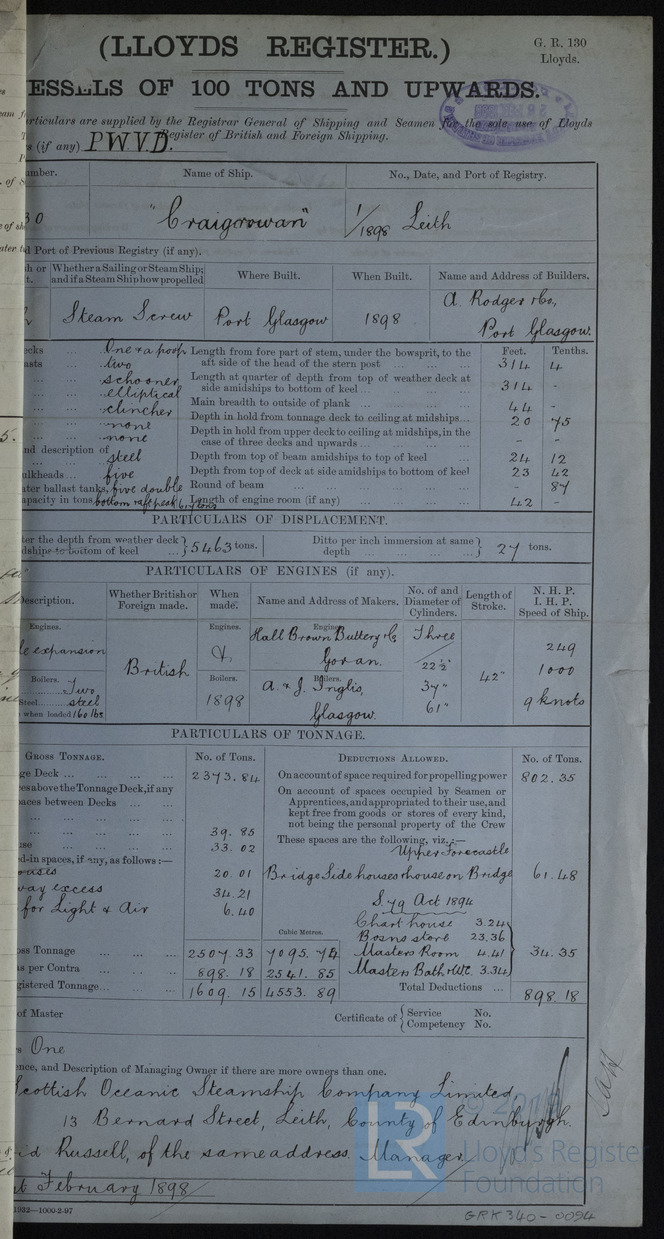 (LLOYDS REGISTER.)
G. R. 130
Lloyds.
ESSELS OF 100 TONS AND UPWARDS.
articulars are supplied by the Registrar General of Shipping and Seamen for the sole use of Lloyds
Register of British and Foreign Shipping.
s (if any) P.W.V.D.
umber.
Name of Ship.
No., Date, and Port of Registry.
30
"Craigrowan"
1/1898 Leith
d Port of Previous Registry (if any).
h or
t.
Whether a Sailing or Steam Ship;
and if a Steam Ship how propelled
Where Built.
When Built.
Name and Address of Builders.
Steam Screw
Port Glasgow
1898
A. Rodger & Co,
Port Glasgow.
Feet.
Tenths.
ecks ... One & a poop
asts ... two
schooner
elliptical
clincher
none
none
nd description of
steel
ulkheads... five
ater ballast tanks, five double
apacity in tons bottom & aft peak 617 tons
Length from fore part of stem, under the bowsprit, to the
aft side of the head of the stern post ... 314 4
Length at quarter of depth from top of weather deck at
side amidships to bottom of keel ... 314 -
Main breadth to outside of plank ... 44 -
Depth in hold from tonnage deck to ceiling at midships... 20 75
Depth in hold from upper deck to ceiling at midships, in the
case of three decks and upwards ... - -
Depth from top of beam amidships to top of keel 24 12
Depth from top of deck at side amidships to bottom of keel 23 42
Round of beam ... - 87
Length of engine room (if any) ... 42 -
PARTICULARS OF DISPLACEMENT.
ter the depth from weather deck
dships to bottom of keel ... } 5463 tons.
Ditto per inch immersion at same
depth ... } 27 tons.
PARTICULARS OF ENGINES (if any).
Description.
Whether British or
Foreign made.
When
made.
Name and Address of Makers.
No. of and
Diameter of
Cylinders.
Length of
Stroke.
N. H. P.
I. H. P.
Speed of Ship.
Engines.
Engines.
Engines.
e expansion
British
&
Hall Brown Buttery & Co
Govan.
Three
22½"
37"
61"
42"
249
1000
9 knots
Boilers.
Boilers.
Boilers.
Two
Steel......steel
when loaded 160 lbs
1898
A. & J. Inglis,
Glasgow.
PARTICULARS OF TONNAGE.
GROSS TONNAGE.
No. of Tons.
DEDUCTIONS ALLOWED.
No. of Tons.
ge Deck ... 2373.84
ces above the Tonnage Deck, if any
paces between Decks ...
39.85
use 33.02
d-in spaces, if any, as follows:—
20.01
way excess 34.21
for Light & Air 6.40
On account of space required for propelling power 802.35
On account of spaces occupied by Seamen or
Apprentices, and appropriated to their use, and
kept free from goods or stores of every kind,
not being the personal property of the Crew
These spaces are the following, viz.:—
Upper Forecastle
Bridge Side houses & house on Bridge 61.48
S. 79 Act 1894
Chart house 3.24
Bosns store 23.36
Masters Room 4.41
Masters Bath & WC. 3.34
34.35
Cubic Metres.
oss Tonnage ... 2507.33 7095.74
as per Contra ... 898.18 2541.85
gistered Tonnage... 1609.15 4553.89
Total Deductions ... 898.18
of Master
Certificate of { Service No.
Competency No.
One
ence, and Description of Managing Owner if there are more owners than one.
Scottish Oceanic Steamship Company Limited,
13 Bernard Street, Leith, County of Edinburgh.
Russell, of the same address. Manager
February 1898
1932—1000-2-97
LR
Lloyd's Register
Foundation
GRK340-0094